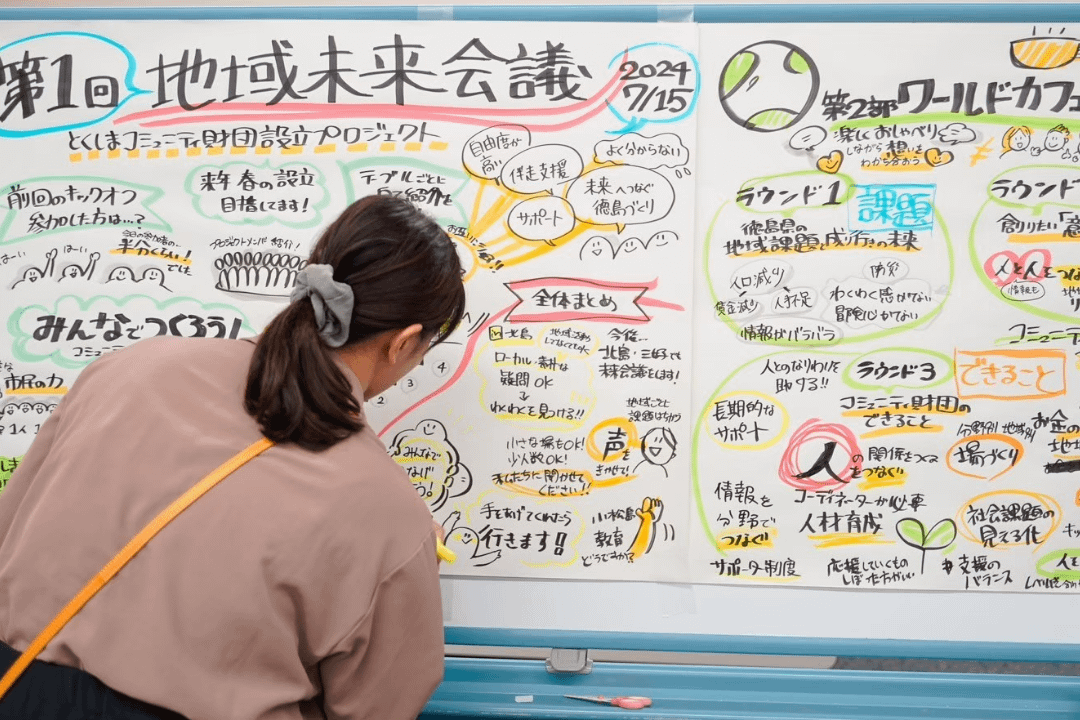 第1回 地域未来会議
2024
7/15
とくしまコミュニティ財団設立プロジェクト
前回のキックオフ
参加した方は…?
はーい
はーい
半分くらい!
でした
来年春の設立
目指してます!
プロジェクトメンバー紹介!
テーブルごとに
自由度が
高い
伴走支援
よく分からない
サポート
未来へつなぐ
徳島づくり
みんなでつくろう!
市民の力
全体まとめ
in 北島
ローカル・新たな
疑問OK
↓
わくわくを見つける!!
今後…
北島・三好でも
未来会議をします!
小さな場もOK!
少人数OK!
私たちに聞かせて
ください!!
地域ごと
課題は
声を
きかせて!
みんなで
つなげ
よう!
手をあげてくれたら
行きます!!
小松島
教育
どうですか?
4
3
2
第2部 ワールドカフェ
楽しくおしゃべり
しながら想いを
わかち合おう
ラウンド1
課題
徳島県の
地域課題と成り行きの未来
人口減り
資金減り
人手不足
情報がバラバラ
防災
わくわく感がない
冒険心がない
ラウンド
創りたい
人と人をつな
情報も
人とのなりわいを
助ける!!
ラウンド3
できること
コミュニティ財団の
できること
長期的な
サポート
人の関係をつくる
をつなぐ
コーディネーターが必要
人材育成
分野別 地域別
場づくり
お金の
地
情報を
分野で
つなぐ
サポーター制度
応援していくもの
しぼった方がいい
社会課題の
見える化
支援の
バランス